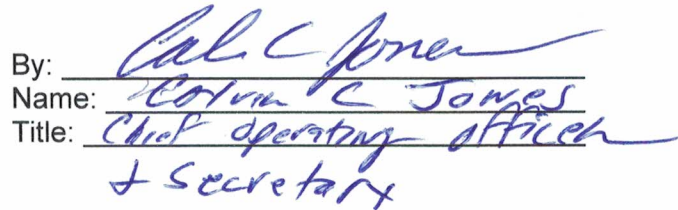 By: Cal C Jones
Name: Calvin C Jones
Title: Chief Operating Officer
& Secretary